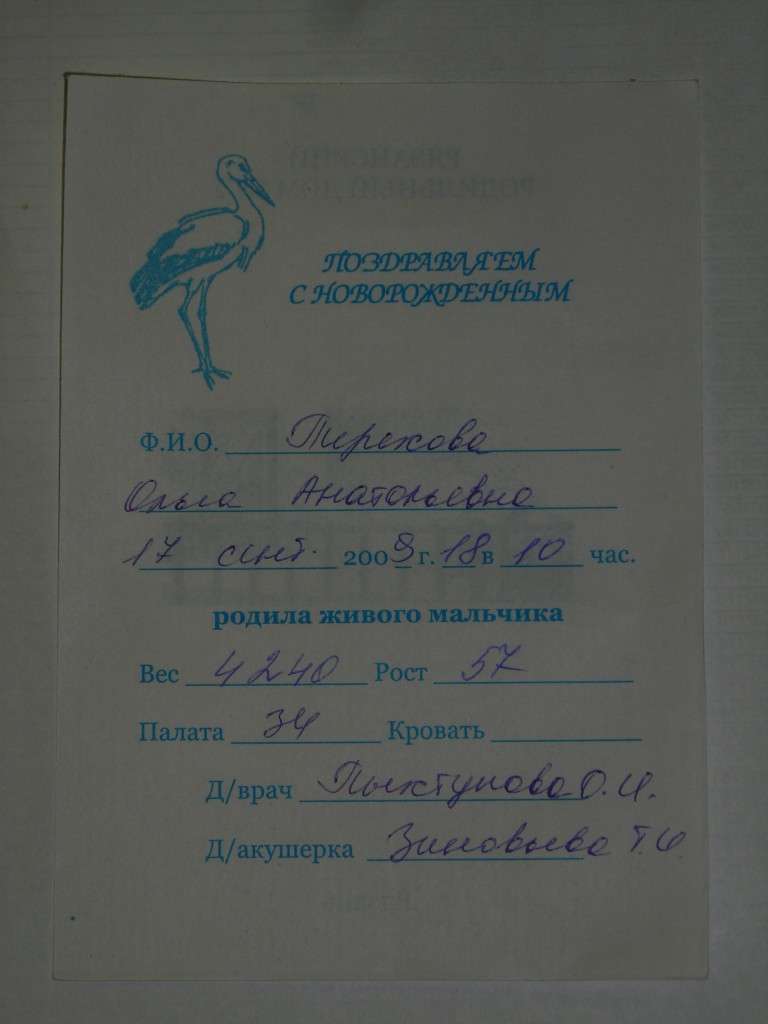 ПОЗДРАВЛЯЕМ
С НОВОРОЖДЕННЫМ
Ф.И.О. Терехова
Ольга Анатольевна
17 сент. 2009 г. 18 в 10 час.
родила живого мальчика
Вес 4240 Рост 57
Палата 34 Кровать
Д/врач О.И.
Д/акушерка Зиновьева Т.И.